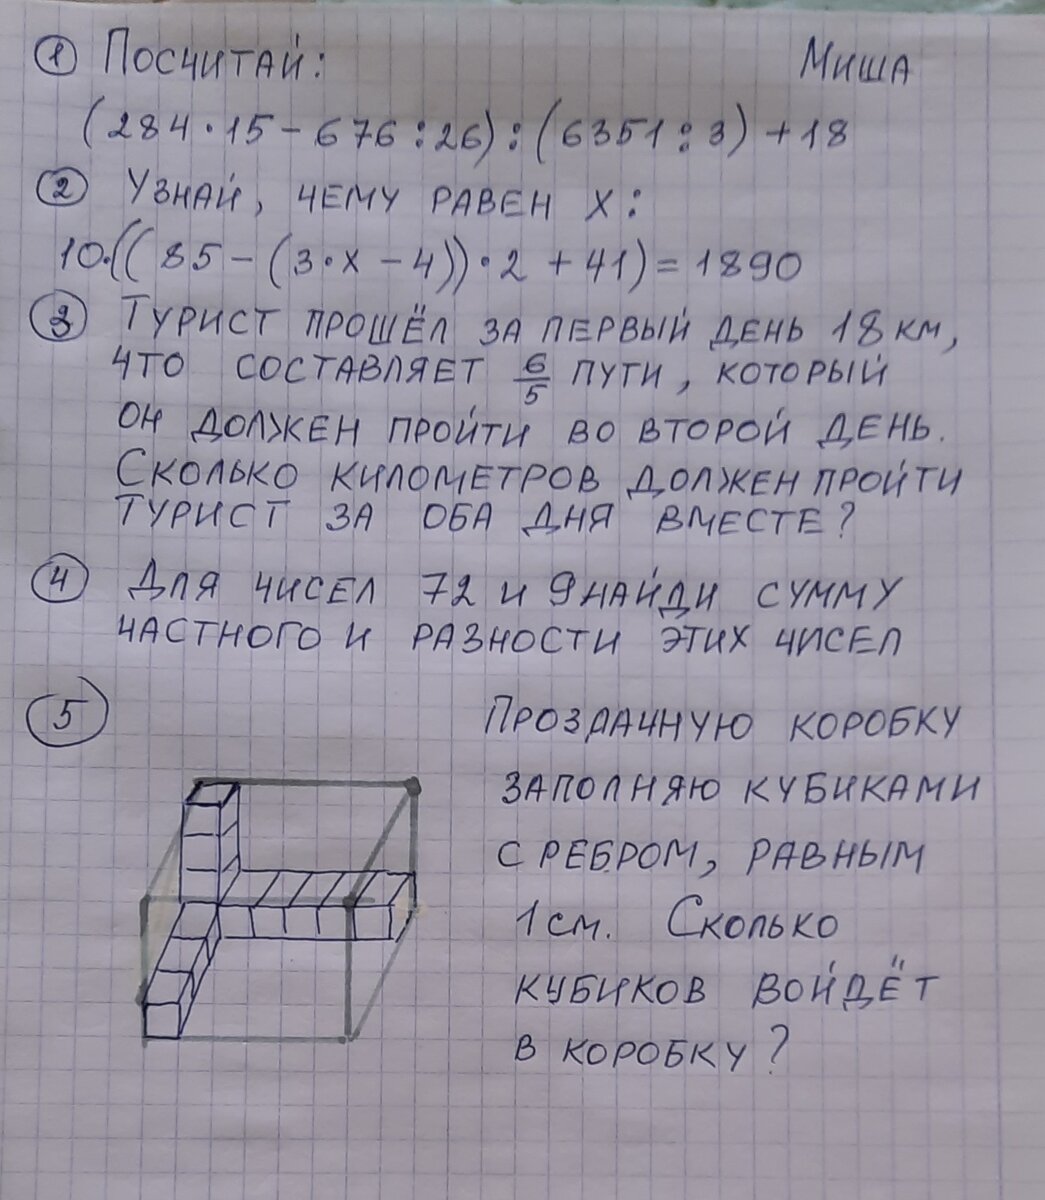 ① Посчитай: Миша
(284·15-676:26):(6351:3)+18
② Узнай, чему равен х:
10·((85-(3·х-4))·2+41)=1890
③ Турист прошёл за первый день 18 км,
что составляет 6/5 пути, который
он должен пройти во второй день.
Сколько километров должен пройти
турист за оба дня вместе?
④ Для чисел 72 и 9 найди сумму
частного и разности этих чисел
⑤ Прозрачную коробку
заполняю кубиками
с ребром, равным
1 см. Сколько
кубиков войдёт
в коробку?